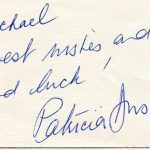 chael
est wishes and
d luck!
Patricia